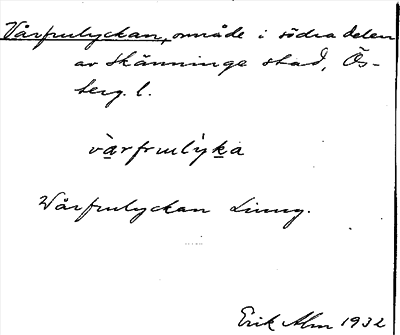 Vårfrulyckan, område i södra delen
av Skänninge stad, Ös-
terg. l.
vàrfrulyka
Wårfrulyckan Linng.
Erik Alm 1932